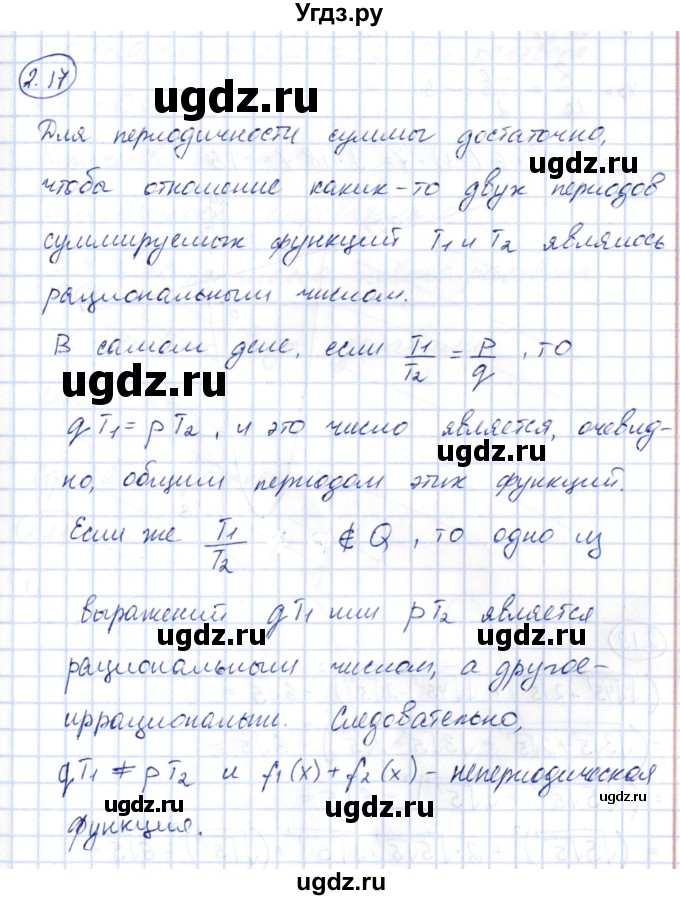 Угдз.ру
2.17
ugdz.ru
Для периодичности суммы достаточно,
ugdz.ru
чтобы отношение каких-то двух периодов
суммируемых функций T₁ и T₂ являлось
рациональным числом.
В самом деле, если T₁/T₂ = p/q, то
ugdz.ru
qT₁ = pT₂, и это число является, очевид-
ugdz.ru
но, общим периодом этих функций.
Если же T₁/T₂ ∉ Q, то одно из
выражений qT₁ или pT₂ является
ugdz.ru
ugdz.ru
рациональным числом, а другое-
иррациональным. Следовательно,
qT₁ ≠ pT₂ и f₁(x) + f₂(x) - непериодическая
ugdz.ru
ugdz.ru
функция.
ugdz.ru
ugdz.ru